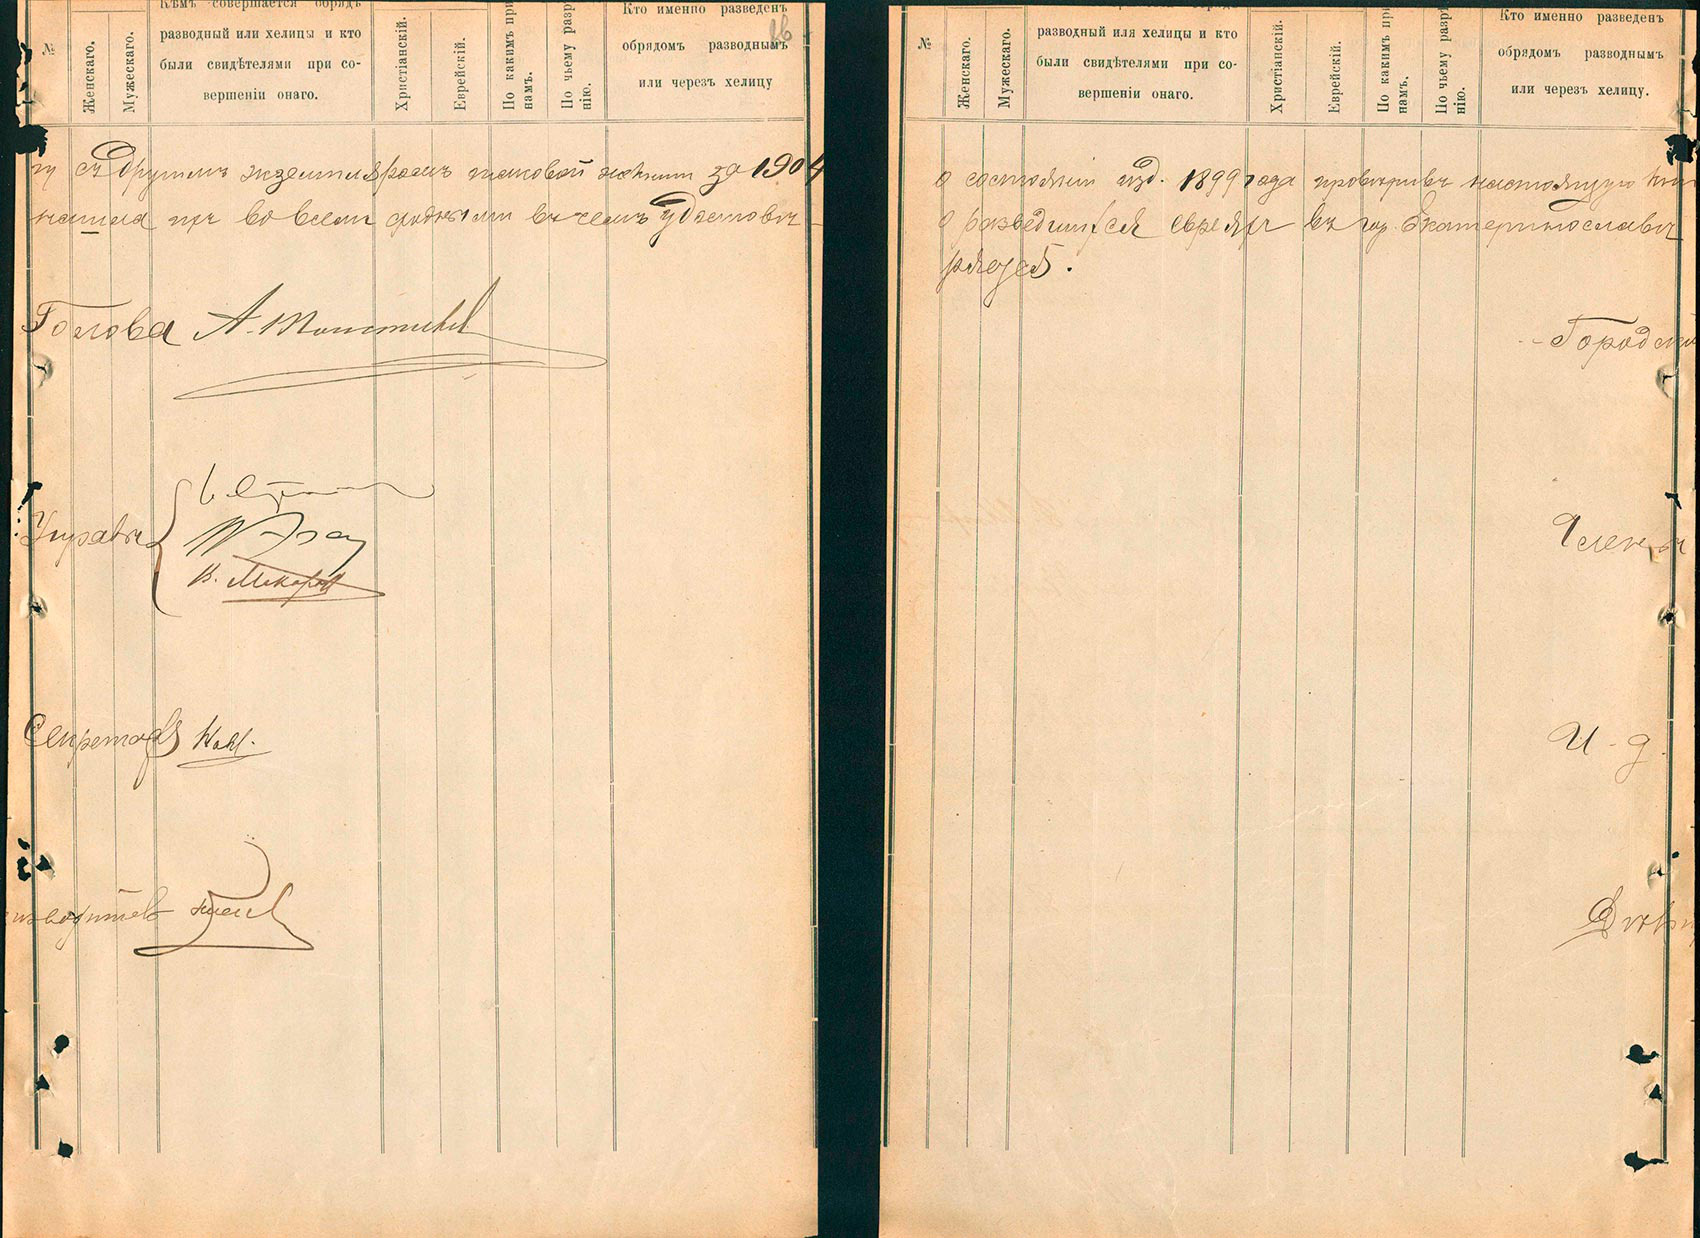 №
Женскаго.
Мужескаго.
Кѣмъ совершается обрядъ
разводный или хелицы и кто
были свидѣтелями при со-
вершеніи онаго.
Христіанскій.
Еврейскій.
По какимъ при
намъ.
По чьему разр
нію.
Кто именно разведенъ
обрядомъ разводнымъ
или черезъ хелицу
съ другимъ экземпляромъ таковой же книги за 1904
нашла их во всем сходными в чем удостовѣ-
Голова А. Толстиков
Управы
В. Макаров
Секретарь
изводитель
№
Женскаго.
Мужескаго.
разводный или хелицы и кто
были свидѣтелями при со-
вершеніи онаго.
Христіанскій.
Еврейскій.
По какимъ при
намъ.
По чьему разрѣ
нію.
Кто именно разведенъ
обрядомъ разводнымъ
или черезъ хелицу.
о состояніи изд. 1899 года провѣривъ настоящую кни
о разведшихся евреяхъ въ гор. Екатеринославѣ
ряетъ.
Городской
Члены
И. д.
Дѣлопр